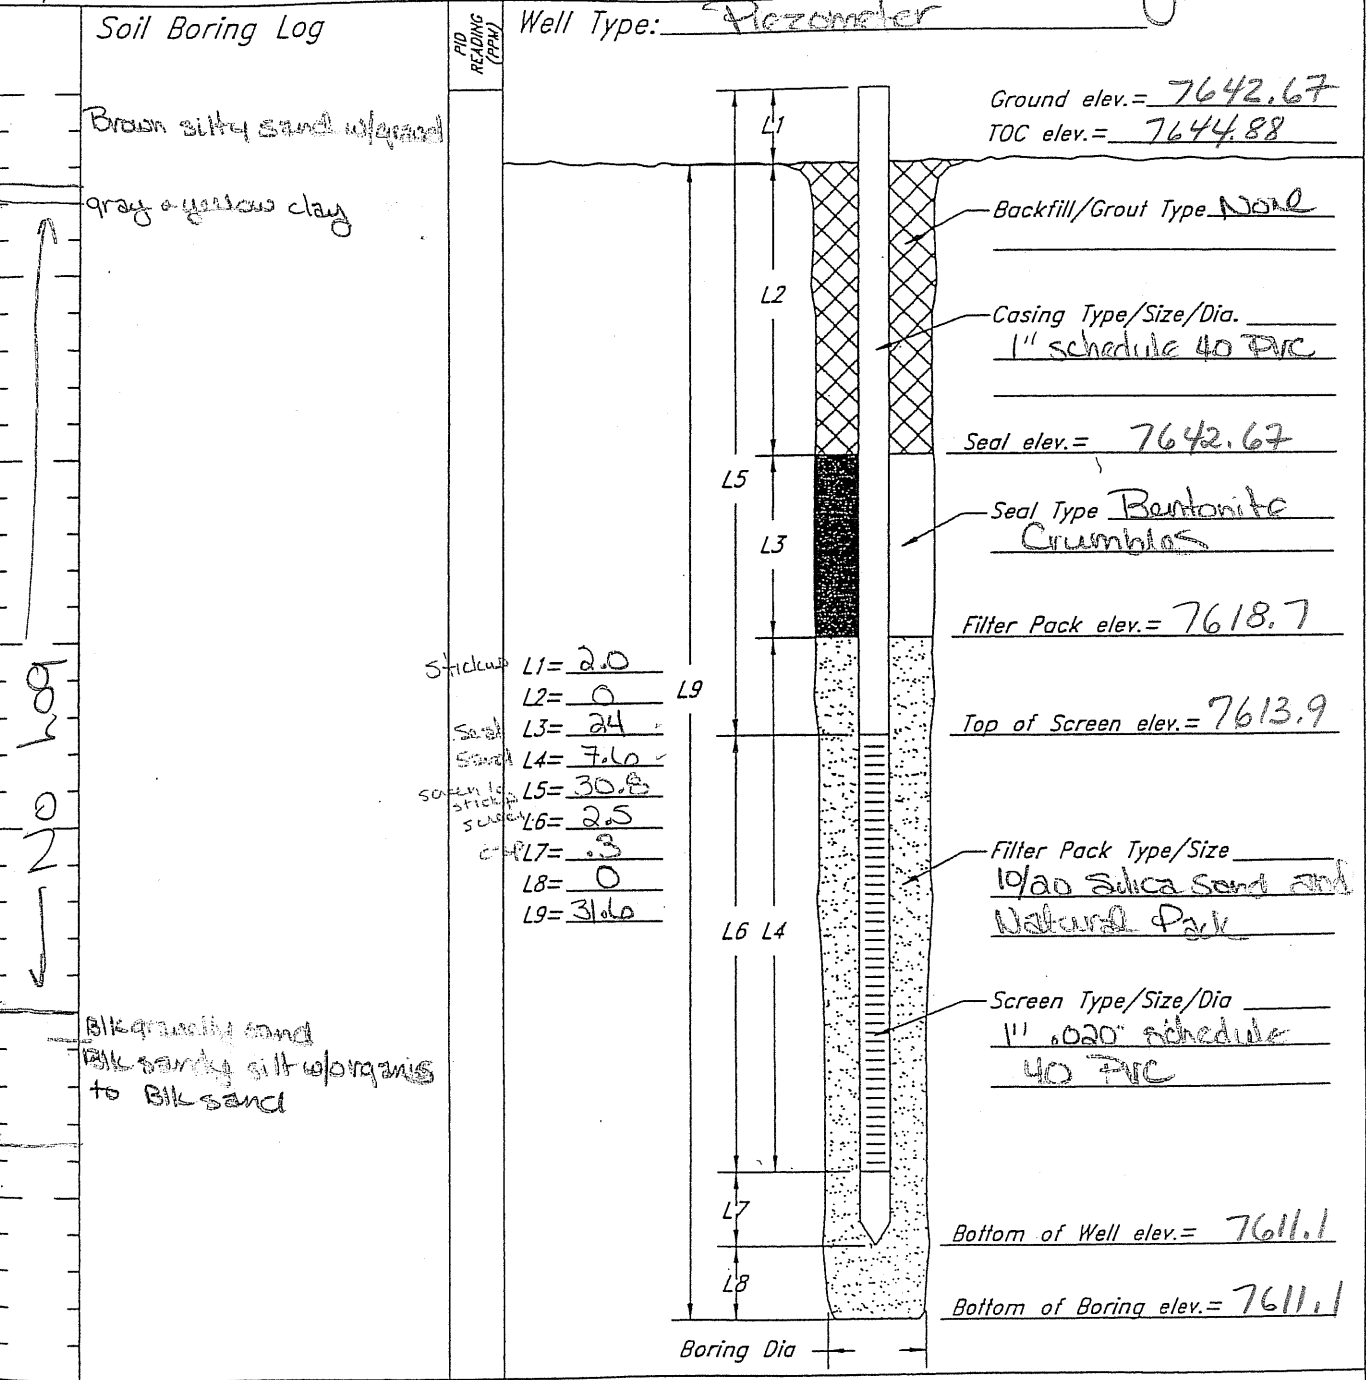 Soil Boring Log
PID READING (PPM)
Well Type: Piezometer
Brown silty sand w/gravel
gray & yellow clay
20 log
Blk gravelly sand
Blk sandy silt w/organis
to Blk sand
Ground elev.= 7642.67
TOC elev.= 7644.88
Backfill/Grout Type None
Casing Type/Size/Dia.
1" schedule 40 PVC
Seal elev.= 7642.67
Seal Type Bentonite
Crumbles
Filter Pack elev.= 7618.7
Top of Screen elev.= 7613.9
Filter Pack Type/Size
10/20 Silica Sand and
Natural Pack
Screen Type/Size/Dia
1" .020" schedule
40 PVC
Bottom of Well elev.= 7611.1
Bottom of Boring elev.= 7611.1
L1
L2
L5
L3
L9
L6 L4
L7
L8
Stickup L1= 2.0
L2= 0
Seal L3= 24
Sand L4= 7.6
screen to stickup L5= 30.8
screen L6= 2.5
cap L7= .3
L8= 0
L9= 31.6
Boring Dia